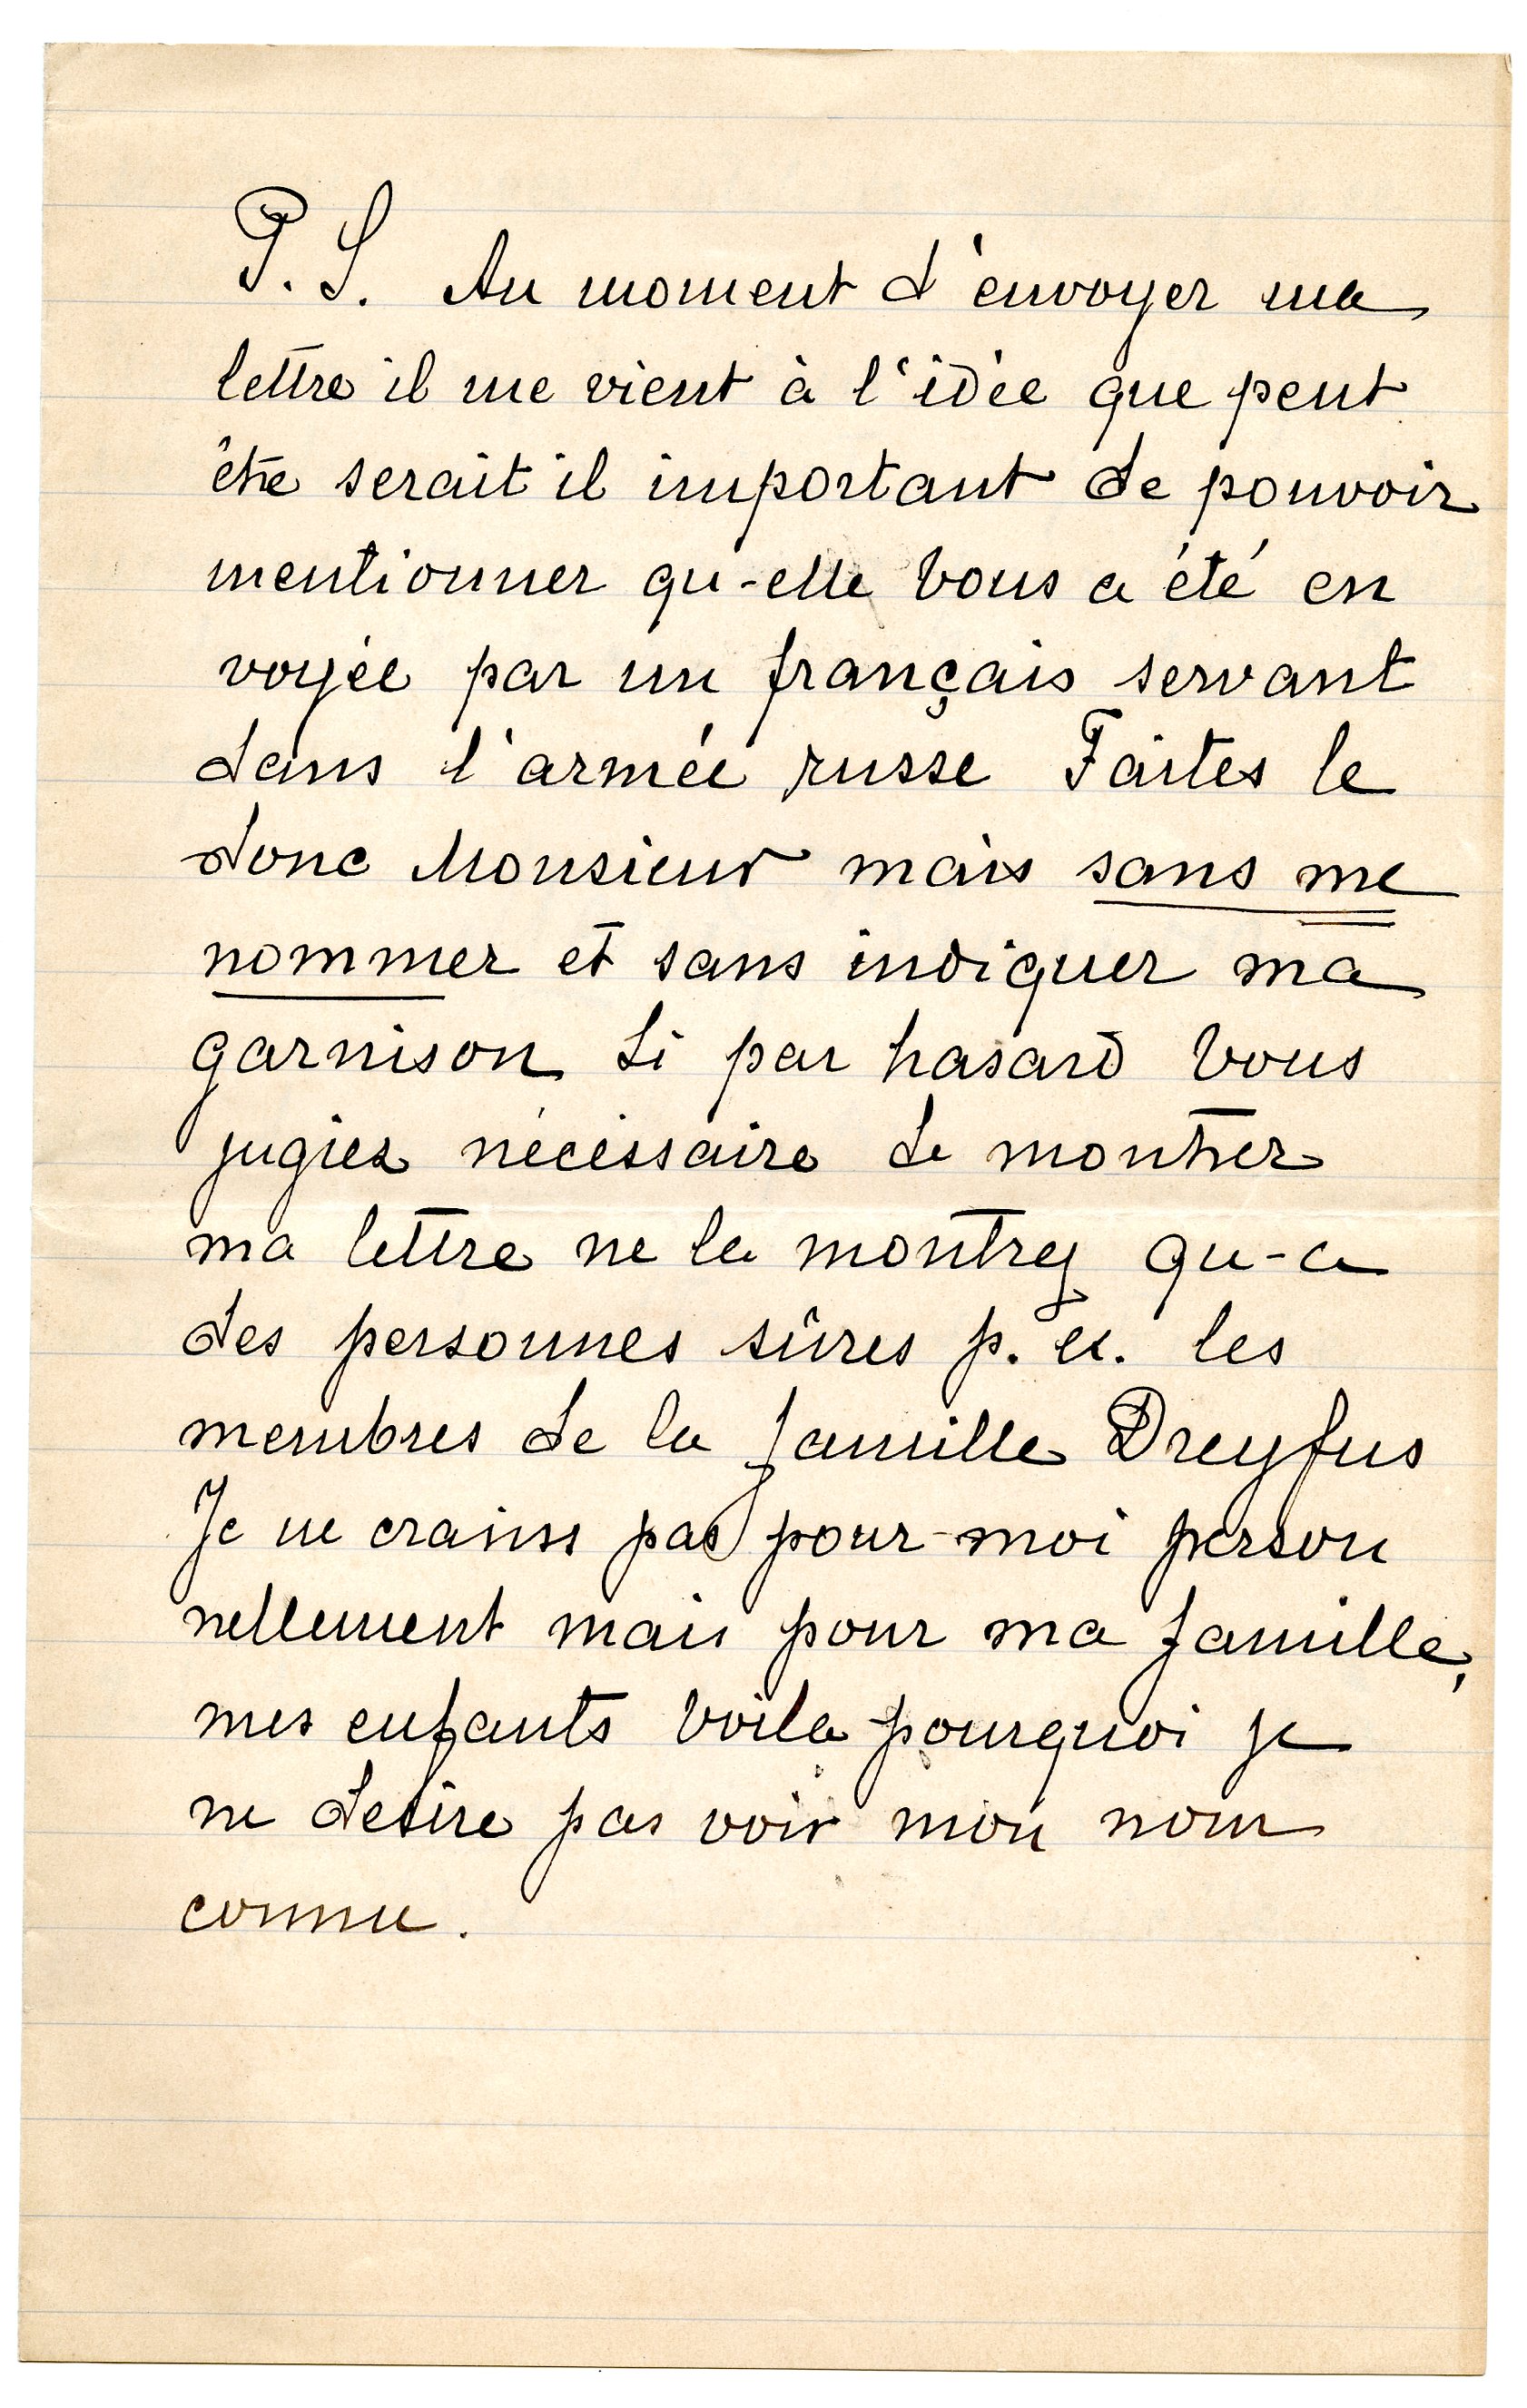 P. S. Au moment d'envoyer ma
lettre il me vient à l'idée que peut
être serait il important de pouvoir
mentionner qu-elle vous a été en
voyée par un français servant
dans l'armée russe Faites le
donc Monsieur mais sans me
nommer et sans indiquer ma
garnison Si par hasard vous
jugiez nécéssaire de montrer
ma lettre ne la montrez qu-a
des personnes sûres p. ex. les
membres de la famille Dreyfus
Je ne crains pas pour moi person
nellement mais pour ma famille,
mes enfants voila pourquoi je
ne desire pas voir mon nom
connu.